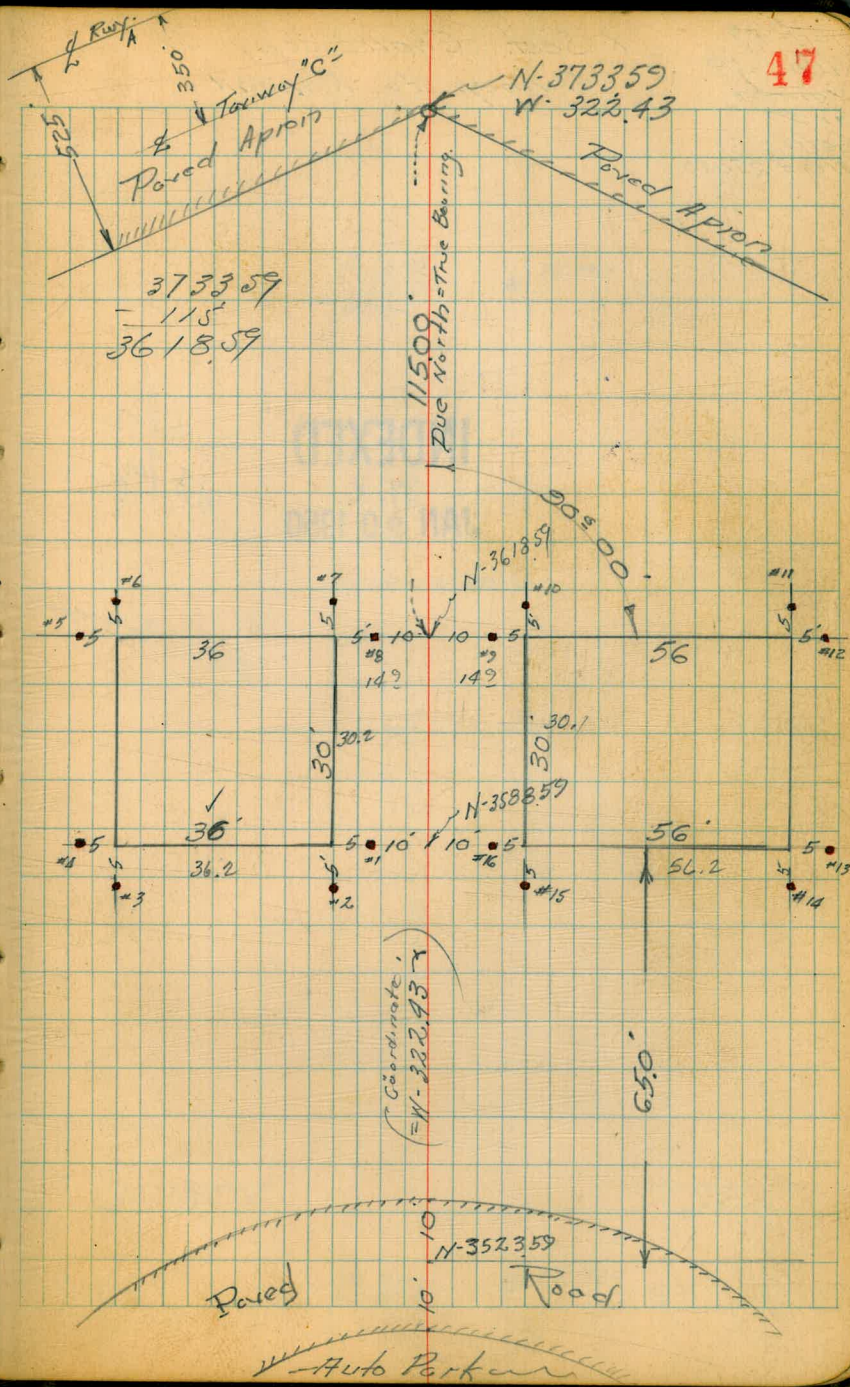 47
℄ Rwy. A
350'
525'
℄ Taxiway "C"
Paved Apron
N-3733.59
W-322.43
Paved Apron
3733.59
- 115
3618.59
115.00'
Due North = True Bearing.
INDEXED
JAN
90°00'
N-3618.59
#6
#7
#10
#11
5
5
5'
5
#5
5
36
5'
#8
10
10
#9
5
56
5'
#12
14.9
14.9
30'
30.2
30'
30.1
✓
36'
N-3588.59
56'
#4
5
5
#1
10'
10'
#16
5
5
#13
36.2
56.2
5'
#3
5'
#2
5
#15
5
#14
(Coordinate,
= W-322.43)
65.0'
10'
N-3523.59
Paved
10'
Road
Auto Park